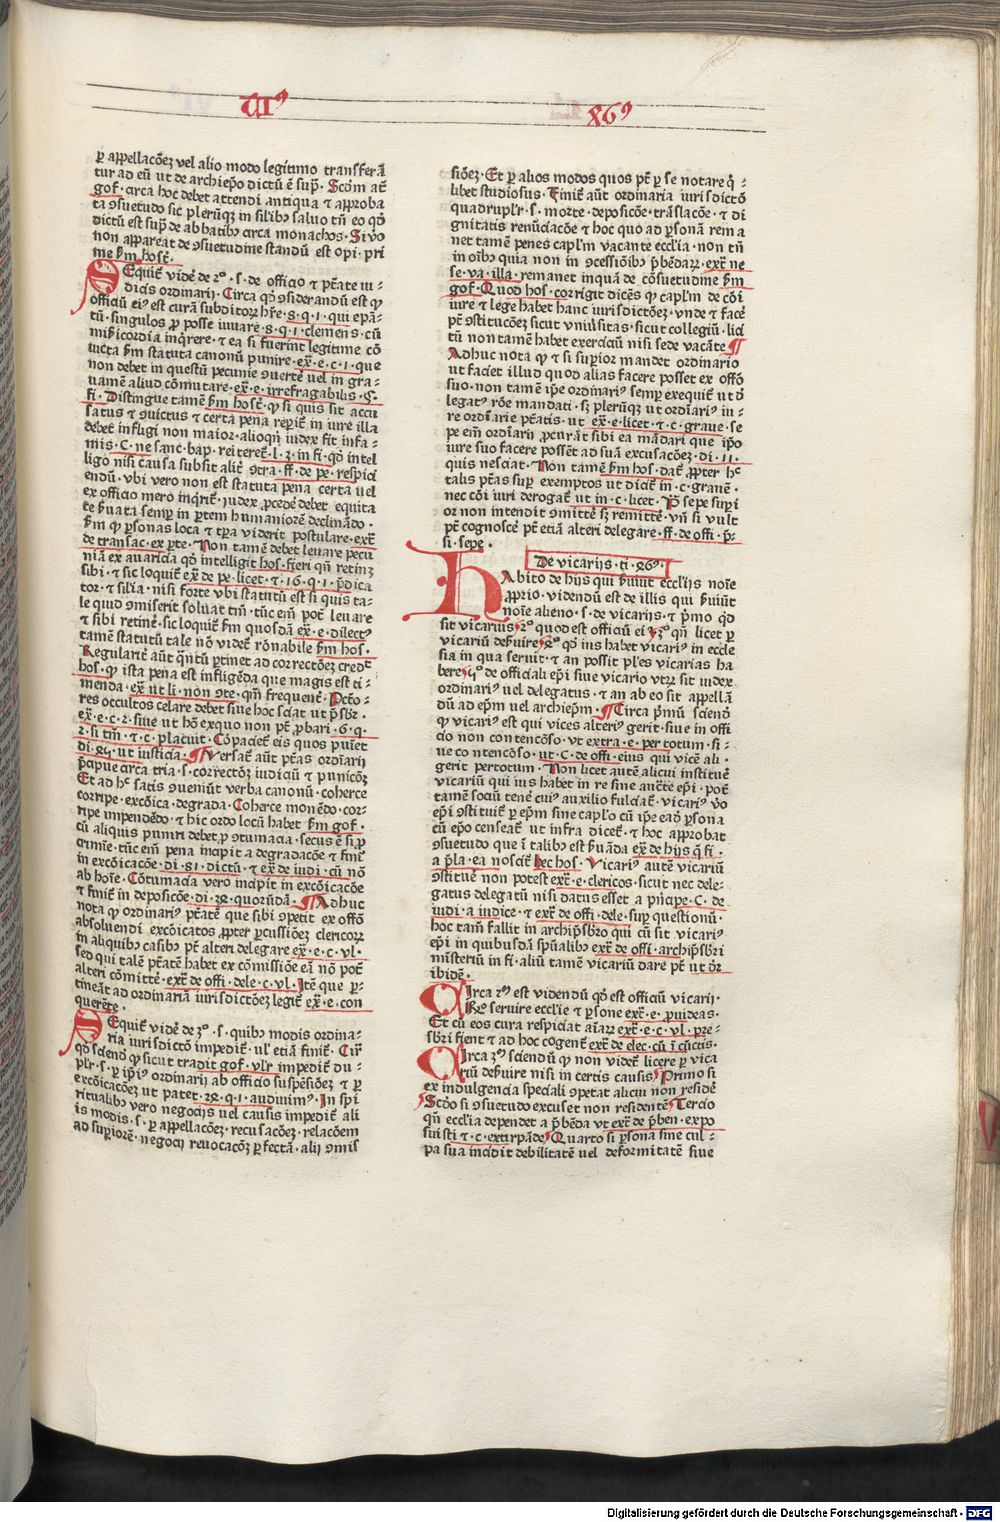 VIꝰ
86ꝰ
ꝑ appellacōeʒ vel alio modo legitimo transferā
tur ad eū ut de archiep̄o dictū ē supᵃ. Scd̄m at̄
gof· circa hoc debet attendi antiqua ⁊ approba
ta ꝯsuetudo sic plerūqꝫ in silibꝰ saluo tn̄ eo qd̄
dictū est supᵃ de abbatibꝰ circa monachos· Si v̄o
non appareat de ꝯsuetudine standū est opi· pri
me ẜm host̄·
SEquit̄ vidē de 2ᵒ ·s· de officio ⁊ ptāte iu-
dicis ordinarij· Circa qd̄ ꝯsiderandū est ꝙ
officiū eiꝰ est curā subditoꝝ hr̄e ·8·q·1· qui epā-
tū· singulos ꝓ posse iuuare ·8·q·1· clemens· cū
mīẜicordia inqͥrere· ⁊ ea si fuerint legitime cō
uicta ẜm statuta canonū punire· ex̄·e·c·1· que
non debet in questū pecunie ꝯuertē vel in gra-
uamē aliud cōmutare· ex̄·e· irrefragabilis·§·
fi· Distingue tamē ẜm host̄· ꝙ si quis sit accu
satus ⁊ ꝯuictus ⁊ certa pena reperit̄ in iure illa
debet infligi non maior· alioqn̄ iudex fit infa-
mis· C· ne sanc̄· bap· reiteret̄· l·2· in fi· qd̄ intel
ligo nisi causa subsit alit̄ ꝯtra· ff· de pe· respici
endū· vbi vero non est statuta pena certa vel
ex officio mero inqͥrit̄· iudex ꝓcedē debet equita
te ẜuata semꝑ in ꝑtem humaniorē declināndo·
ẜm ꝙ ꝑsonas loca ⁊ tp̄ra viderit postulare· extᵃ
de transac· ex ꝑte· Non tamē debet leuare pecu
niā ex auaricia qd̄ intelligit hos· fieri qn̄ retinʒ
sibi· ⁊ sic loquit̄ ex̄ de pe· licet· ⁊ ·16·q·1· p̄dica
tor· ⁊ silia· nisi forte vbi statutū est si quis ta-
le quid ꝯmiserit soluat tm̄· tūc em̄ pot̄ leuare
⁊ sibi retinē· sic loquit̄ ẜm quosdā ex̄·e· dilectꝰ
tamē statutū tale nō videt̄ rōnabile ẜm hos·
Regularit̄ aūt qn̄tū ꝑtinet ad correctōeʒ credᵗ
hos· ꝙ ista pena est infligēda que magis est ti-
menda· ex̄ ut li· non ꝯte· qm̄ frequent̄· Pctō-
res occultos celare debet siue hoc sciat ut p̄sbr̄·
ex̄·e·c·2· siue ut hō exquo non pt̄ ꝓbari ·6·q·
2· si tm̄· ⁊·c· placuit· Cōpaciet̄ eis quos puiet
di·84· ut iusticia· ¶ Versat̄ aūt ptās ordīarij
p̄cipue circa tria ·s· correctōʒ iudiciū ⁊ punicōʒ
Et ad hᶜ satis ꝯueniūt verba canonū· coherce
corripe· excōica· degrada· Coherce monēdo· cor-
ripe impendēdo· ⁊ hic ordo locū habet ẜm gof·
cū aliquis puniri debet ꝓ ꝯtumacia· secus ē si ꝓ
crimīe· tūc em̄ pena incipit a degradacōe ⁊ finit̄
in excōicacōe· di·81· dictū· ⁊ ex̄ de iudi· cū nō
ab hoīe· Cōtumacia vero incipit in excōicacōe
⁊ finit̄ in deposicōe· di·28· quorūdā· ¶ Adhuc
nota ꝙ ordinariꝰ ptātē que sibi ꝯpetit ex offō
absoluendi excōicatos ꝓpter ꝑcussiōeʒ clericoꝝ
in aliquibꝰ casibꝰ pt̄ alteri delegare ex̄·e·c·vl·
sed qui talē ptātē habet ex cōmissiōe eā nō pot̄
alteri cōmittē· ex̄ de offi· dele·c·vl· Itē que ꝑ-
tineāt ad ordinariā iurisdictōeʒ legit̄ ex̄·e· con
querēte·
SEquit̄ vidē de 3ᵒ ·s· quibꝰ modis ordina-
ria iurisdictō impedit̄· vl̓ etiā finit̄· Circͣ
qd̄ sciend̄ ꝙ sicut tradit gof· vlr̄ impedit̄ du-
plr̄ ·s· ꝑ ipsiꝰ ordinarij ab officio suspēsiōeʒ ⁊ ꝑ
excōicacōeʒ ut patet ·28·q·1· audiuimꝰ· In spi
ritualibꝰ vero negocijs vel causis impedit̄ ali
is modis ·s· ꝑ appellacōeʒ· recusacōeʒ· relacōem
ad supiorē· negocij reuocacōʒ ꝑfectā· alij ꝯmis
siōeʒ· Et ꝑ alios modos quos pt̄ ꝑ se notare qͥ-
libet studiosus· Finit̄ aūt ordinaria iurisdictō
quadruplr̄ ·s· morte· deposicōe· trāslacōe· ⁊ di
gnitatis renūciacōe ⁊ hoc quo ad ꝑsonā rema
net tamē penes capl̄m vacante eccl̄ia· non tn̄
in oībꝰ quia non in ꝯcessiōibꝰ p̄bēdaꝝ· extᵃ ne
se· va· illa· remanet inquā de cōsuetudine ẜm
gof· Quod hos· corrigit dicēs ꝙ capl̄m de cōi
iure ⁊ lege habet hanc iurisdictōeʒ· vnde ⁊ facē
pt̄ ꝯstitucōeʒ sicut vniūsitas· sicut collegiū· lici
tū non tamē habet exerciciū nisi sede vacāte ¶
Adhuc nota ꝙ ⁊ si supior mandet ordinario
ut faciet illud quod alias facere posset ex offō
suo· non tamē ip̄e ordinariꝰ semꝑ exequit̄ ut d̄
legatꝰ rōe mandati· sʒ plerūqꝫ ut ordīariꝰ iu-
re ordīarie ptātis· ut ex̄·e· licet· ⁊·c· graue· se
pe em̄ ordīarij ꝓcurāt sibi ea mādari que ip̄o
iure suo facere possēt ad suā excusacōeʒ· di·11·
quis nesciat· Non tamē ẜm hos· dat̄ ꝓpter hᶜ
talis ptās supᵃ exemptos ut dicit̄ in ·c· grauē·
nec cōi iuri derogat̄ ut in ·c· licet· Ip̄e sepe supi
or non intendit ꝯmittē sʒ remittē· vn̄ si vult
pt̄ cognoscē pt̄ etiā alteri delegare· ff· de offi· p̄-
si· sepe·
De vicarijs· ti· 86ꝰ·
HAbito de hijs qui ẜuiūt eccl̄ijs noīe
ꝓprio· videndū est de illis qui ẜuiūt
noīe alieno ·s· de vicarijs· ⁊ p̄mo qd̄
sit vicarius 2ᵒ quod est officiū eiꝰ 3ᵒ qn̄ licet ꝑ
vicariū deẜuire 4ᵒ qd̄ ius habet vicariꝰ in eccle
sia in qua seruit· ⁊ an possit ples vicarias ha
bere 5ᵒ de officiali ep̄i siue vicario vtꝝ sit iudex
ordinariꝰ uel delegatus· ⁊ an ab eo sit appellā
dū ad ep̄m vel archiep̄m· ¶ Circa p̄mū sciend̄
ꝙ vicariꝰ est qui vices alteriꝰ gerit· siue in offi
cio non contencōso· vt extra·e· per totum· si-
ue contencōso· ut·C· de offi· eius qui vicē ali·
gerit pertotum· Non licet autē alicui instituē
vicariū qui ius habet in re sine aucte ep̄i· pot̄
tamē sociū tenē cuiꝰ auxilio fulciat̄· vicariꝰ v̄o
ep̄i ꝯstituit̄ ꝑ ep̄m sine caplō cū ip̄e eadē ꝑsona
cū ep̄o censeat̄ ut infra dicet̄· ⁊ hoc approbat
ꝯsuetudo que ī talibꝰ est ẜuāda ex̄ de hijs q̄ fi·
a p̄la· ea noscit̄ hec hos· Vicariꝰ autē vicariū
ꝯstituē non potest extᵃ·e· clericos· sicut nec dele-
gatus delegatū nisi datus esset a p̄ncipe· C· de
iudi· a iudice· ⁊ extᵃ de offi· dele· sup̱ questionū·
hoc tam̄ fallit in archip̄sbro qui cū sit vicariꝰ
ep̄i in quibusdā spūalibꝰ extᵃ de offi· archip̄sbri
misteriū in fi· aliū tamē vicariū dare pt̄ ut dr̄
ibidē·
CIrca 2ᵐ est videndū qd̄ est officiū vicarij·
Rᵒ seruire eccl̄ie ⁊ ꝑsone extᵃ·e· ꝓuideas·
Et cū eos cura respiciat aīaꝝ extᵃ·e·c·vl· pre-
sbr̄i fient ⁊ ad hoc cogent̄ ex̄ de elec· cū ī cūctis·
CIrca 3ᵐ sciendū ꝙ non videt̄ licere ꝑ vica
riū deẜuire nisi in certis causis Primo si
ex indulgencia speciali ꝯpetat alicui non residē
Scdō si ꝯsuetudo excuset non residentē Tercio
qn̄ eccl̄ia dependet a p̄bēda vt ex̄ de p̄ben· expo
suisti ⁊·c· extirpāde Quarto si ꝑsona sine cul-
pa sua incidit debilitatē uel deformitatē siue
Digitalisierung gefördert durch die Deutsche Forschungsgemeinschaft - DFG